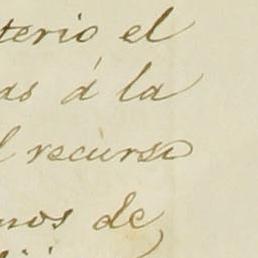 terio el
as á la
l recurso
nos de